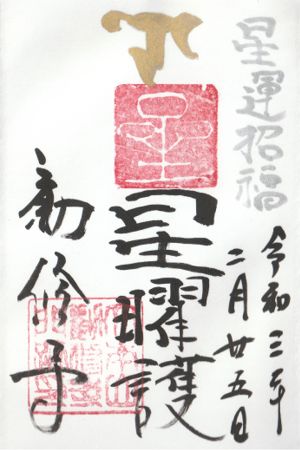 星運招福
令和三年
二月廿五日
星
星曜護
勧修寺